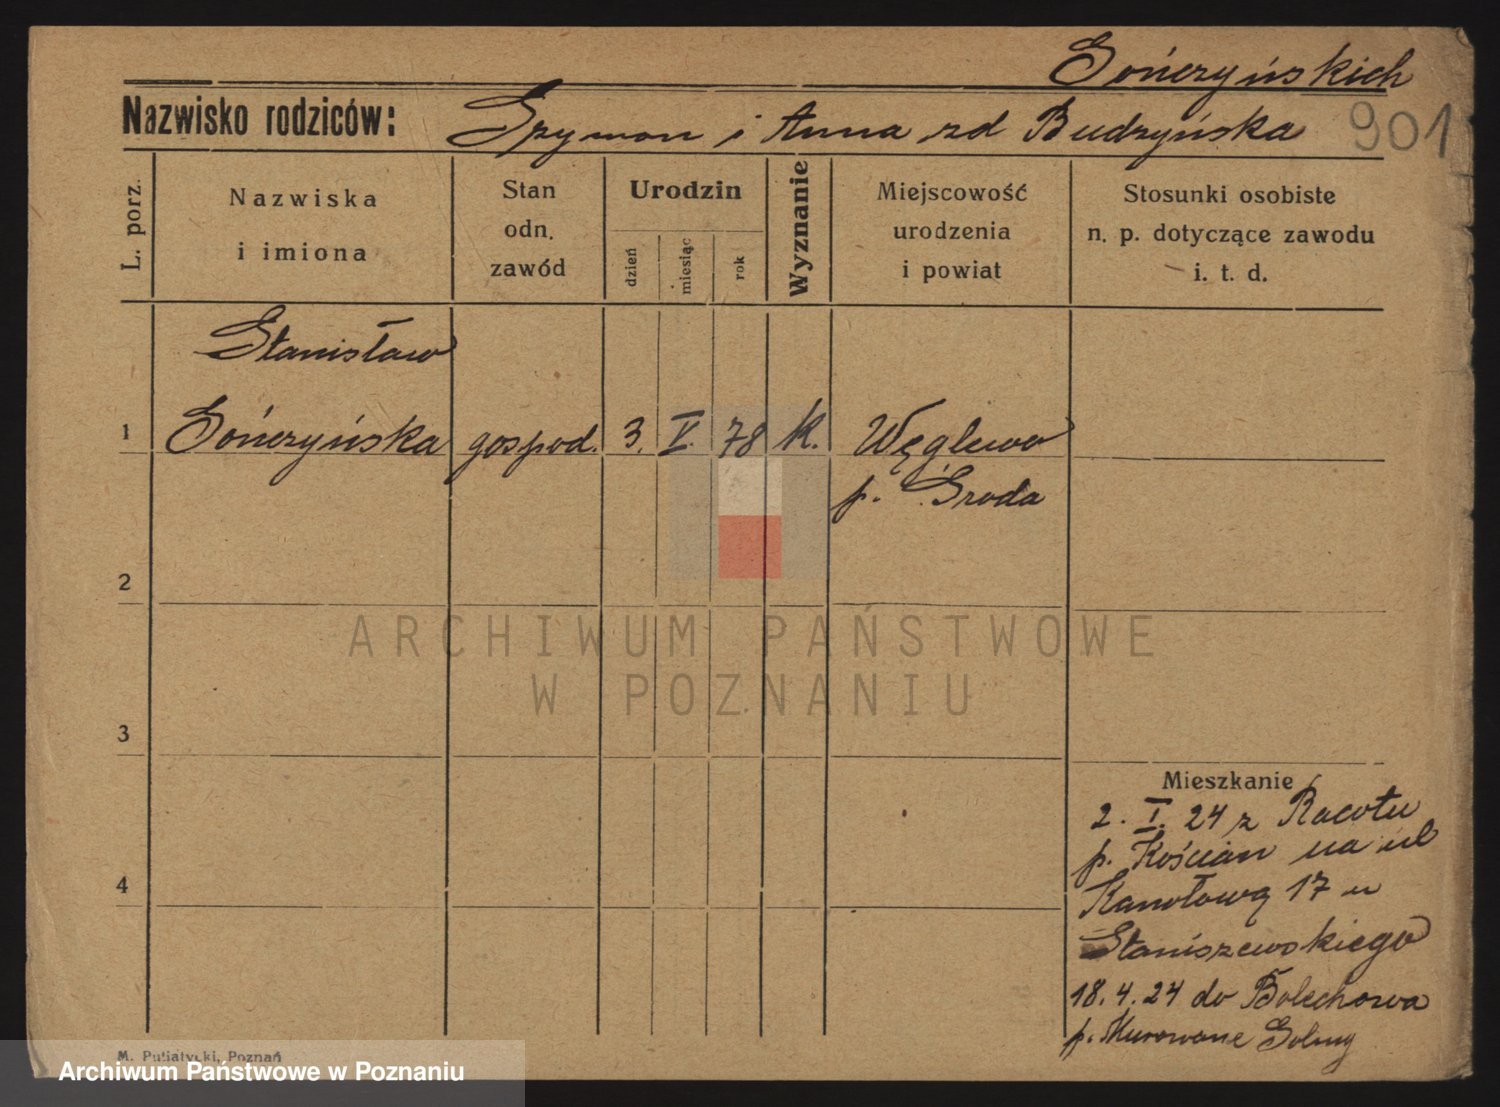 Gończyńskich
Nazwisko rodziców: Szymon i Anna zd Budzyńska 901
L. porz.
Nazwiska
i imiona
Stan
odn.
zawód
Urodzin
dzień
miesiąc
rok
Wyznanie
Miejscowość
urodzenia
i powiat
Stosunki osobiste
n. p. dotyczące zawodu
i. t. d.
Stanisław
1 Gończyńska gospod. 3. V. 78 k. Węglewo
p. Środa
2
ARCHIWUM PAŃSTWOWE
W POZNANIU
3
4
Mieszkanie
2. I. 24 z Racotu
p. Kościan na ul
Kanałową 17 u
Staniszewskiego
18. 4. 24 do Bolechowa
p. Murowane Goliny
M. Putiatycki, Poznań
Archiwum Państwowe w Poznaniu